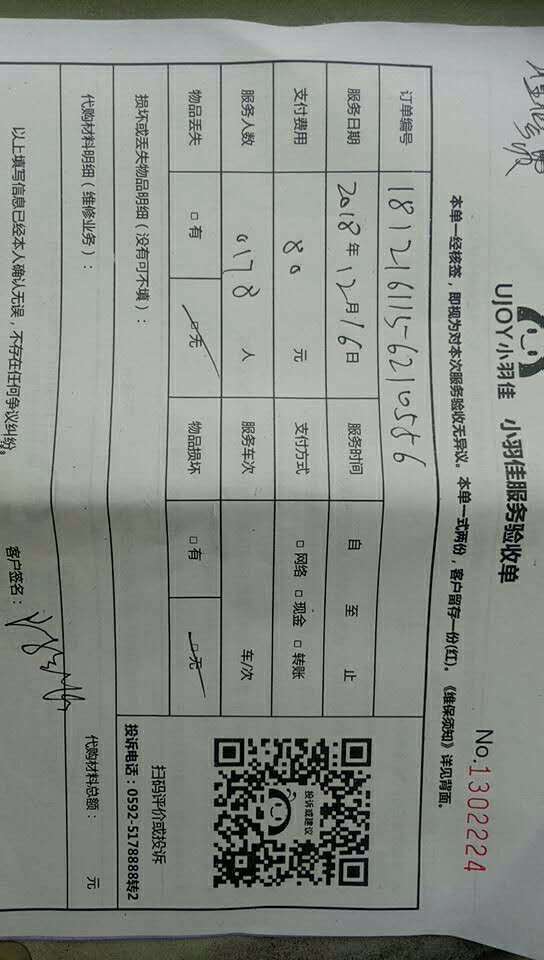 UJOY小羽佳 小羽佳服务验收单
No.1302224
本单一经核签，即视为对本次服务验收无异议。本单一式两份，客户留存一份(红)。《维保须知》详见背面。
订单编号 1812161156210586
服务日期 2018年12月16日 服务时间 自 至 止
支付费用 80 元 支付方式 □网络 □现金 □转账
服务人数 0178 人 服务车次 车/次
物品丢失 □有 □无 物品损坏 □有 □无
损坏或丢失物品明细（没有可不填）：
投诉或建议
扫码评价或投诉
投诉电话：0592-5178888转2
代购材料明细（维修业务）：
代购材料总额： 元
以上填写信息已经本人确认无误，不存在任何争议纠纷。
客户签名：